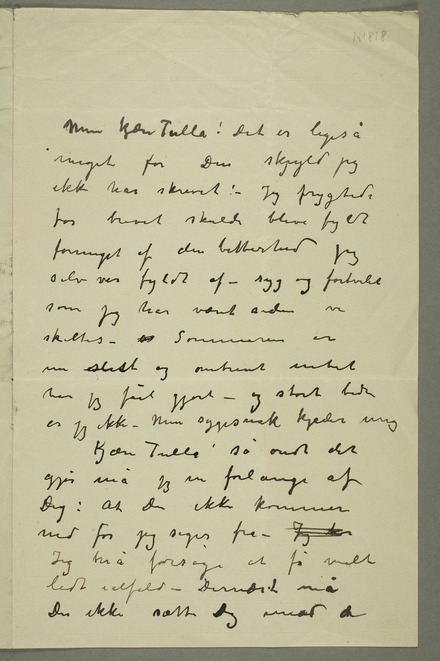 N1818
Min kjære Tulla! Det er ligeså
meget for Din skyld jeg
ikke har skrevet! – Jeg frygtede
for brevet skulde blive fyldt
formeget af den bitterhed jeg
selv var fyldt af – syg og fortvilet
som jeg har været siden vi
skiltes – Sommeren er
nu slut og omtrent intet
har jeg fåt gjort – og stort bedre
er jeg ikke – Min sygesnak kjeder mig
Kjære Tulla! så ondt det
gjør må jeg nu forlange af
Dig: At Du ikke kommer
ned før jeg siger fra – Jeg har
Jeg må forsøge at få malt
lidt ialfald – Dernæst må
Du ikke sætte Dig imod at